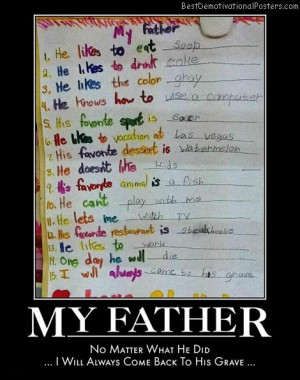 BestDemotivationalPosters.com
My Father
1. He likes to eat soop
2. He likes to drink coke
3. He likes the color gray
4. He knows how to use a computer
5. His favorite spot is
6. He likes to vacation at Las vegas
7. His favorite dessert is watermelon
8. He doesn't like kids
9. His favorite animal is a fish
10. He can't play with me
11. He lets me wach TV
12. His favorite restaurant is steakhouse
13. He likes to work
14. One day he will die
15. I will always come to his grave
MY FATHER
No Matter What He Did
... I Will Always Come Back To His Grave ...